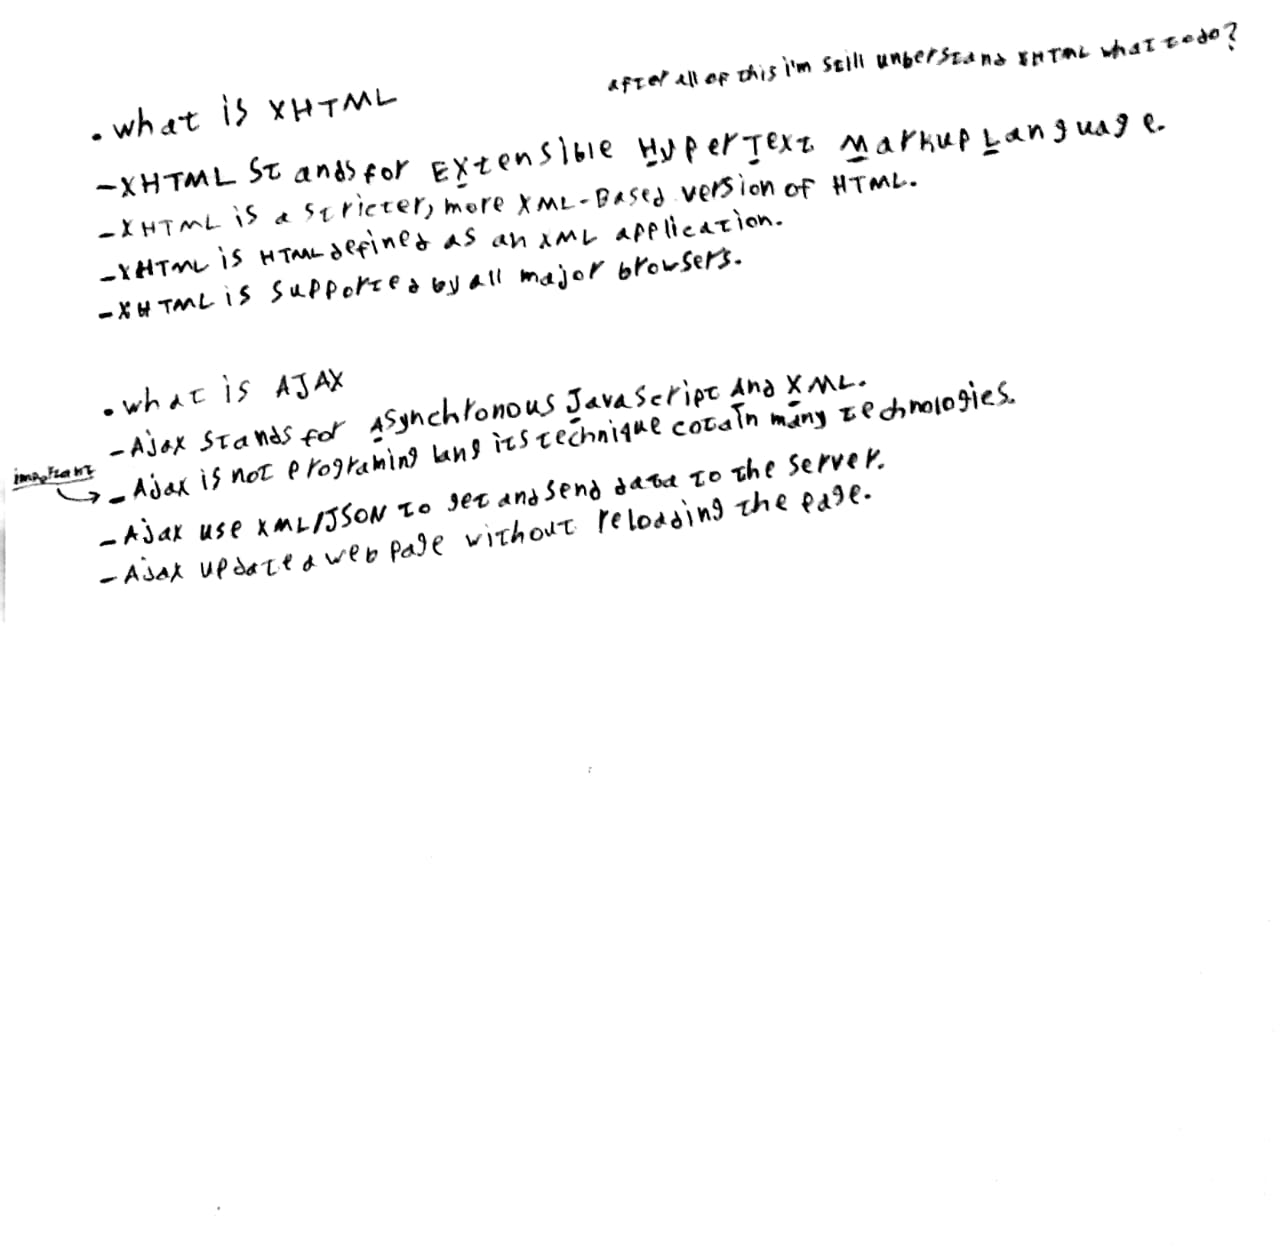 after all of this i'm still unberstand XHTML what todo?
• what is XHTML
- XHTML Stands for EXtensible HyperText Markup Language.
- XHTML is a stricter, more XML-Based version of HTML.
- XHTML is HTML defined as an XML application.
- XHTML is supported by all major browsers.
• what is AJAX
- Ajax stands for ASynchronous JavaScript And XML.
important
→ - Ajax is not programing lang its technique cotain many technologies.
- Ajax use XML/JSON to get and send data to the server.
- Ajax update a web page without reloading the page.